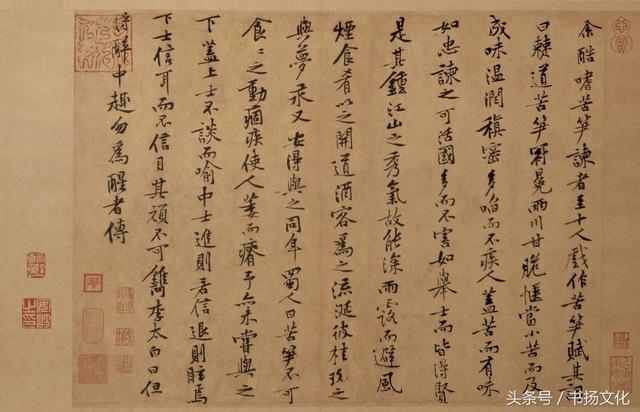 余酷嗜苦笋諫者至十人戲作苦笋賦其詞
曰僰道苦笋冠冕兩川甘脆愜當小苦而及
成味溫潤稹密多啗而不疾人蓋苦而有味
如忠諫之可活國多而不害如舉士而皆得賢
是其鍾江山之秀氣故能深雨露而避風
煙食肴以之開道酒客為之流涎彼桂玫之
與夢汞又安得與之同年蜀人曰苦笋不可
食〻之動痼疾使人萎而瘠予亦未嘗與之
下蓋上士不談而喻中士進則若信退則眩焉
下士信耳而不信目其頑不可鐫李太白曰但
得醉中趣勿為醒者傳
头条号 / 书扬文化